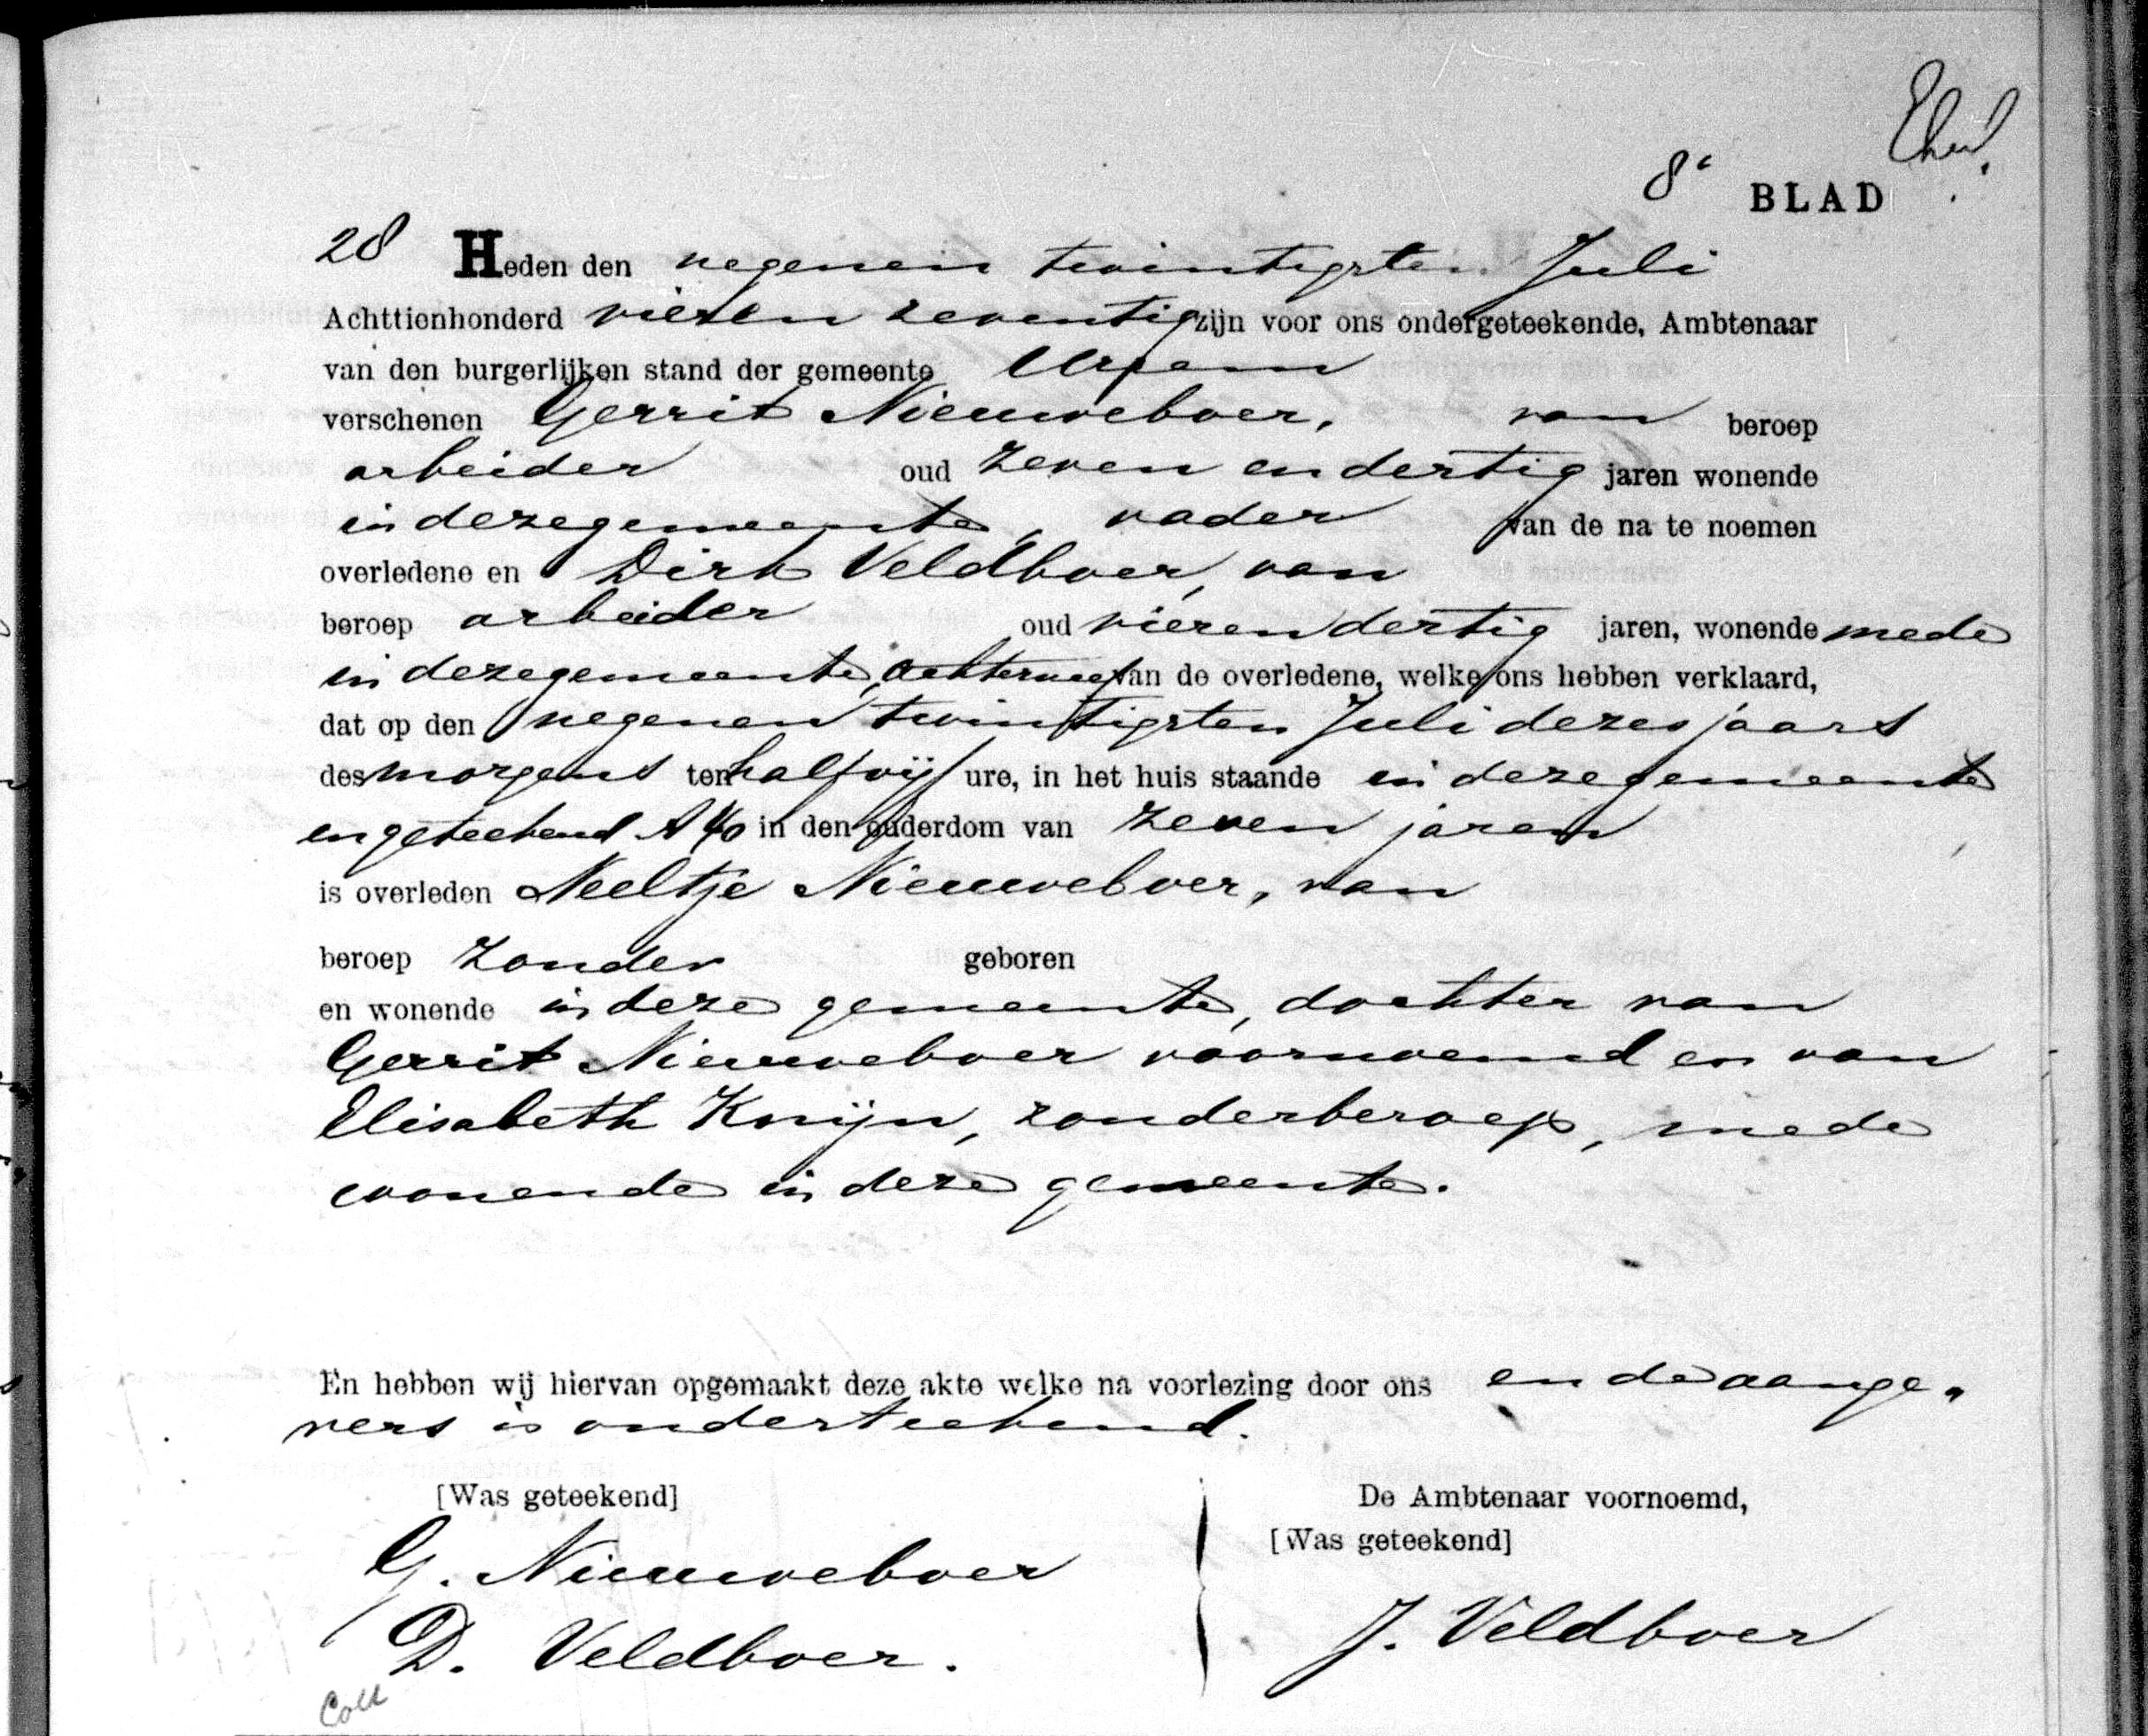 8e BLAD
28 Heden den negenen twintigsten Juli
Achttienhonderd vieren zeventig zijn voor ons ondergeteekende, Ambtenaar
van den burgerlijken stand der gemeente Ursem
verschenen Gerrit Nieuweboer, van beroep
arbeider oud zeven en dertig jaren wonende
in dezegemeente, vader van de na te noemen
overledene en Dirk Veldboer, van
beroep arbeider oud vieren dertig jaren, wonende mede
in dezegemeente, achterneef van de overledene, welke ons hebben verklaard,
dat op den negenen twintigsten Juli dezes jaars
des morgens ten half vijf ure, in het huis staande in dezegemeente
en geteekend A 40 in den ouderdom van zeven jaren
is overleden Neeltje Nieuweboer, van
beroep zonder geboren
en wonende in deze gemeente, dochter van
Gerrit Nieuweboer voornoemd en van
Elisabeth Knijn, zonder beroep, mede
wonende in deze gemeente.
En hebben wij hiervan opgemaakt deze akte welke na voorlezing door ons en de aange„
vers is onderteekend.
[Was geteekend]
G. Nieuweboer
D. Veldboer.
De Ambtenaar voornoemd,
[Was geteekend]
J. Veldboer
Coll